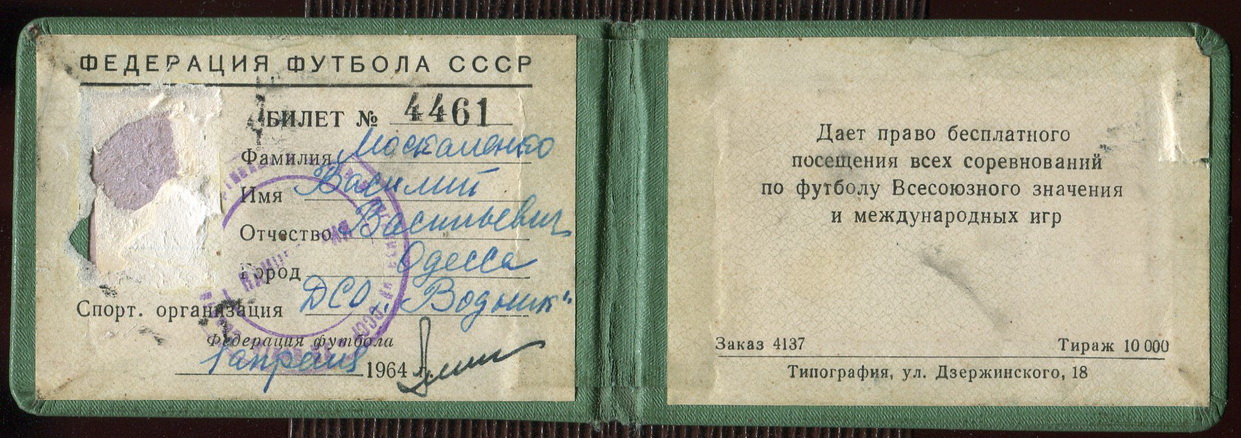 ФЕДЕРАЦИЯ ФУТБОЛА СССР
БИЛЕТ № 4461
Фамилия Москаленко
Имя Василий
Отчество Васильевич
Город Одесса
Спорт. организация ДСО „Водник"
Федерация футбола
1 апреля 1964 г.
Дает право бесплатного
посещения всех соревнований
по футболу Всесоюзного значения
и международных игр
Заказ 4137 Тираж 10 000
Типография, ул. Дзержинского, 18